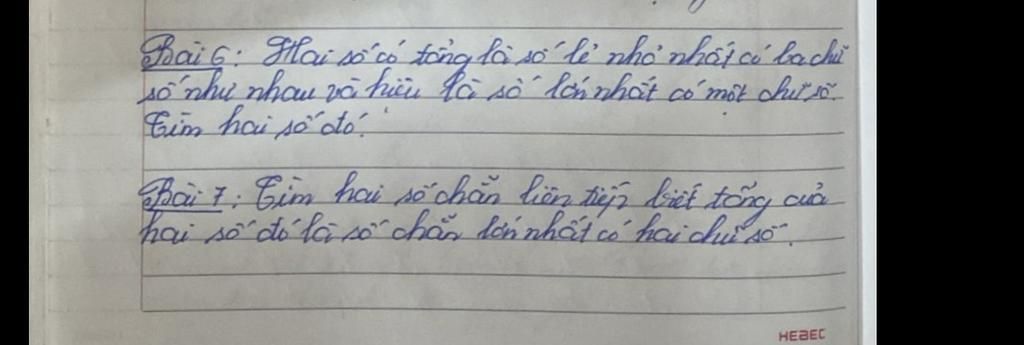 Bài 6: Hai số có tổng là số lẻ nhỏ nhất có ba chữ
số như nhau và hiệu là số lớn nhất có một chữ số.
Tìm hai số đó.
Bài 7: Tìm hai số chẵn liên tiếp biết tổng của
hai số đó là số chẵn lớn nhất có hai chữ số.
HEBEC